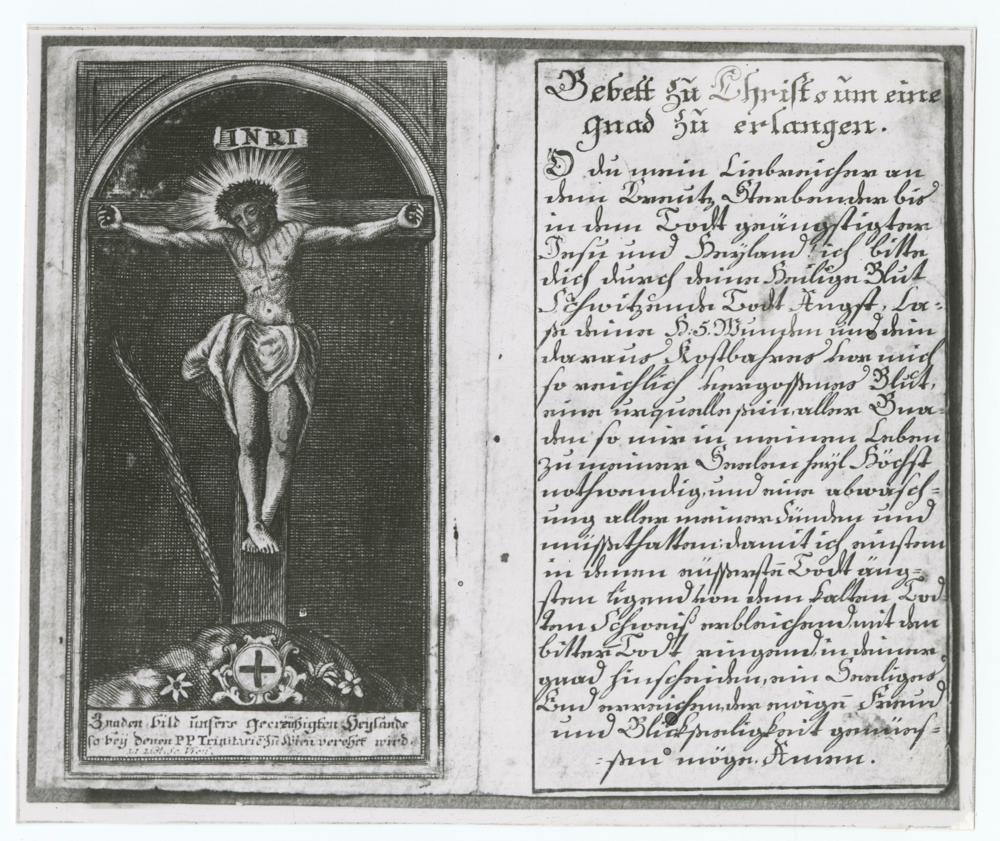 INRI
Gnaden bild unsers gecreuzigten Heylands
so beÿ denen PP Trinitariẽ zu Wien verehrt wird
Gebett zu Christo um eine
gnad zu erlangen.
O du mein Liebreicher an
dem Creutz Sterbender bis
in dem Todt geängstigter
Jesu und Heÿland ich bitte
dich durch deine Heilige Blut
Schwitzende Todt Angst, La-
sse deine H: 5 Wunden und dein
daraus Kostbahres vor mich
so reichlich vergossenes Blut,
eine urquelle seÿn, aller Gna-
den so mir in meinen Leben
zu meiner Seelen heÿl Höchst
nothwendig, und eine abwasch=
ung aller meiner Sünden und
müssethatten: damit ich einstens
in denen eüsserstẽ Todt äng=
sten ligend von dem kalten Tod
ten Schweiß erbleichend mit dem
bitterẽ Todt ringend, in deiner
gnad hinscheiden, ein Seeliges
End erreichen, der ewigẽ Freud
und Glückseeligkeit genües-
=sen möge. Amen.